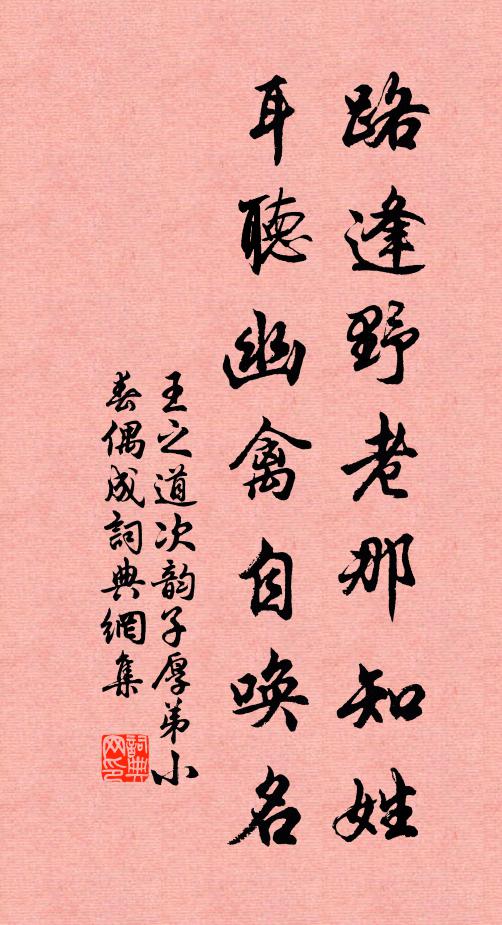 路逢野老那知姓
耳聽幽禽自唤名
王之道次韵子厚弟小
春偶成詞典網集
詞典
网印